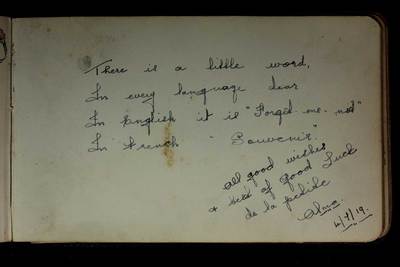 There is a little word,
In every language dear
In English it is "Forget-me-not"
In French " Souvenir".
All good wishes
& best of Good Luck
de la petite
/4/19.